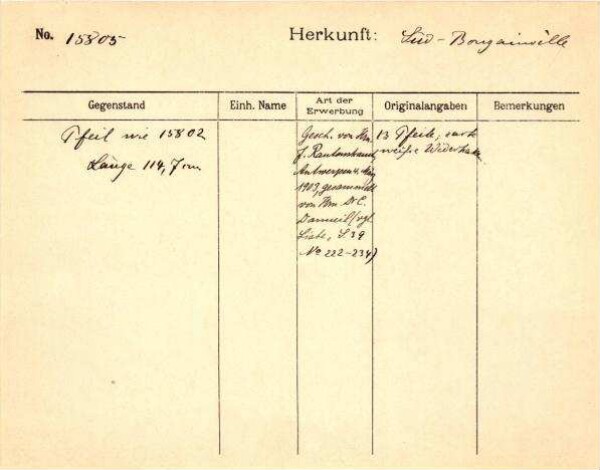 No. 15805 Herkunft: Süd-Bougainville
Gegenstand Einh. Name Art der Erwerbung Originalangaben Bemerkungen
Pfeil wie 15802
Länge 114,7 cm
Gesch. von Hrn.
J.
Antwerpen
1903, gesammelt
von Hrn Dr. C.
Danneil (vgl.
Liste, S. 39
No 222-234)
13 Pfeile,
weiße Widerhaken